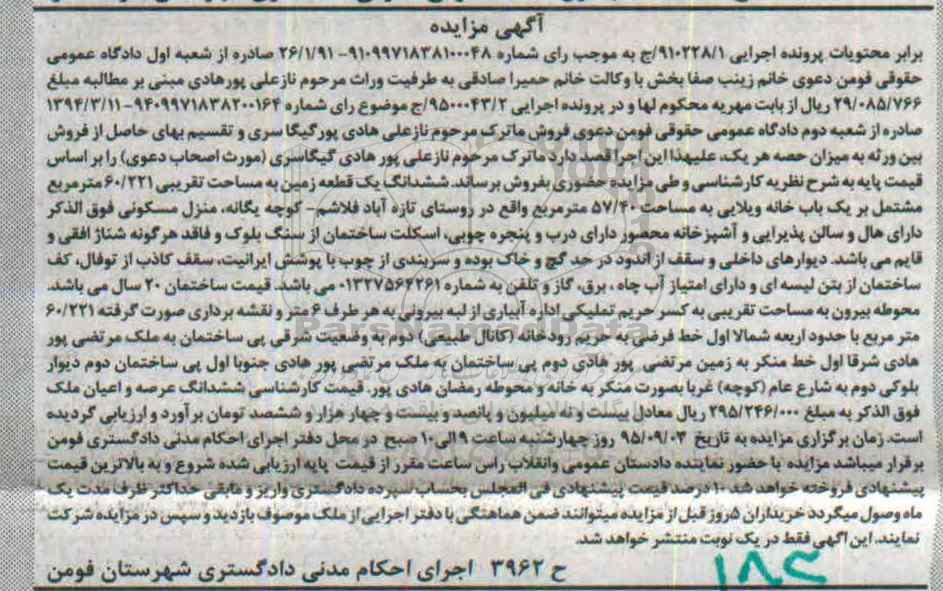 آگهی مزایده
برابر محتویات پرونده اجرایی ۹۱۰۲۲۸/۱/ج به موجب رای شماره ۹۱۰۹۹۷۱۸۳۸۱۰۰۰۴۸- ۲۶/۱/۹۱ صادره از شعبه اول دادگاه عمومی
حقوقی فومن دعوی خانم زینب صفا بخش با وکالت خانم حمیرا صادقی به طرفیت وراث مرحوم نازعلی پورهادی مبنی بر مطالبه مبلغ
۲۹/۰۸۵/۷۶۶ ریال از بابت مهریه محکوم لها و در پرونده اجرایی ۹۵۰۰۰۴۳/۲/ج موضوع رای شماره ۹۴۰۹۹۷۱۸۳۸۲۰۰۱۶۴-۱۳۹۴/۳/۱۱
صادره از شعبه دوم دادگاه عمومی حقوقی فومن دعوی فروش ماترک مرحوم نازعلی هادی پورگیگا سری و تقسیم بهای حاصل از فروش
بین ورثه به میزان حصه هر یک، علیهذا این اجرا قصد دارد ماترک مرحوم نازعلی پور هادی گیگاسری (مورث اصحاب دعوی) را بر اساس
قیمت پایه به شرح نظریه کارشناسی و طی مزایده حضوری بفروش برساند. ششدانگ یک قطعه زمین به مساحت تقریبی ۶۰/۲۲۱ مترمربع
مشتمل بر یک باب خانه ویلایی به مساحت ۵۷/۴۰ مترمربع واقع در روستای تازه آباد فلاشم- کوچه یگانه، منزل مسکونی فوق الذکر
دارای هال و سالن پذیرایی و آشپزخانه محصور دارای درب و پنجره چوبی، اسکلت ساختمان از سنگ بلوک و فاقد هرگونه شناژ افقی و
قایم می باشد. دیوارهای داخلی و سقف از اندود در حد گچ و خاک بوده و سربندی از چوب با پوشش ایرانیت، سقف کاذب از توفال، کف
ساختمان از بتن لیسه ای و دارای امتیاز آب چاه ، برق، گاز و تلفن به شماره ۰۱۳۲۷۵۶۴۲۶۱ می باشد. قیمت ساختمان ۲۰ سال می باشد.
محوطه بیرون به مساحت تقریبی به کسر حریم تملیکی اداره آبیاری از لبه بیرونی به هر طرف ۶ متر و نقشه برداری صورت گرفته ۶۰/۲۲۱
متر مربع با حدود اربعه شمالا اول خط فرضی به حریم رودخانه (کانال طبیعی) دوم به وضعیت شرقی پی ساختمان به ملک مرتضی پور
هادی شرقا اول خط منکر به زمین مرتضی پور هادی دوم پی ساختمان به ملک مرتضی پور هادی جنوبا اول پی ساختمان دوم دیوار
بلوکی دوم به شارع عام (کوچه) غربا بصورت منکر به خانه و محوطه رمضان هادی پور. قیمت کارشناسی ششدانگ عرصه و اعیان ملک
فوق الذکر به مبلغ ۲۹۵/۲۴۶/۰۰۰ ریال معادل بیست و نه میلیون و پانصد و بیست و چهار هزار و ششصد تومان برآورد و ارزیابی گردیده
است. زمان برگزاری مزایده به تاریخ ۹۵/۰۹/۰۳ روز چهارشنبه ساعت ۹ الی ۱۰ صبح در محل دفتر اجرای احکام مدنی دادگستری فومن
برقرار میباشد مزایده با حضور نماینده دادستان عمومی وانقلاب راس ساعت مقرر از قیمت پایه ارزیابی شده شروع و به بالاترین قیمت
پیشنهادی فروخته خواهد شد ۱۰ درصد قیمت پیشنهادی فی المجلس بحساب سپرده دادگستری واریز و مابقی حداکثر ظرف مدت یک
ماه وصول میگردد خریداران ۵روز قبل از مزایده میتوانند ضمن هماهنگی با دفتر اجرایی از ملک موصوف بازدید و سپس در مزایده شرکت
نمایند. این اگهی فقط در یک نوبت منتشر خواهد شد.
ح ۳۹۶۲ اجرای احکام مدنی دادگستری شهرستان فومن
ParsNamadData